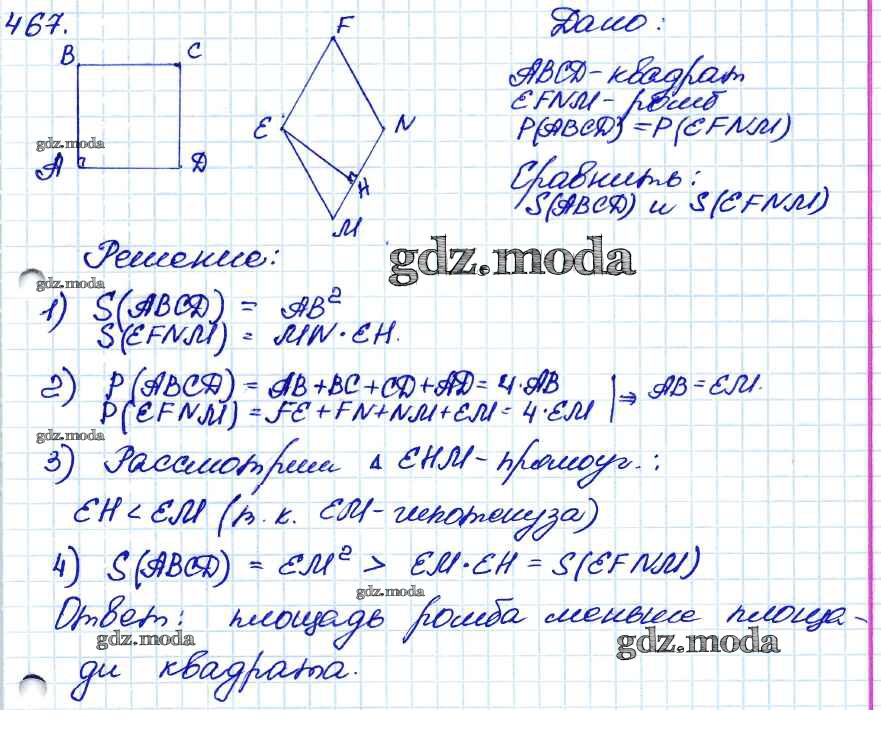 467.
B C
A D
F
E N
H
M
Дано:
ABCD - квадрат
EFNM - ромб
P(ABCD) = P(EFNM)
Сравнить:
S(ABCD) и S(EFNM)
gdz.moda
Решение:
gdz.moda
gdz.moda
1) S(ABCD) = AB²
S(EFNM) = MN·EH.
2) P(ABCD) = AB+BC+CD+AD = 4·AB
P(EFNM) = FE+FN+NM+EM = 4·EM | ⇒ AB = EM.
gdz.moda
3) Рассмотрим Δ EHM - прямоуг.:
EH < EM (т.к. EM - гипотенуза)
4) S(ABCD) = EM² > EM·EH = S(EFNM)
gdz.moda
Ответ: площадь ромба меньше площа-
gdz.moda gdz.moda
ди квадрата.